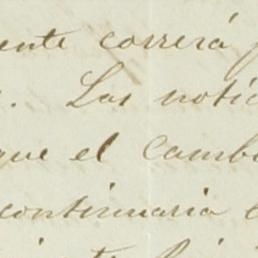 ente correrá
. Las notic
que el cambi
continuaria